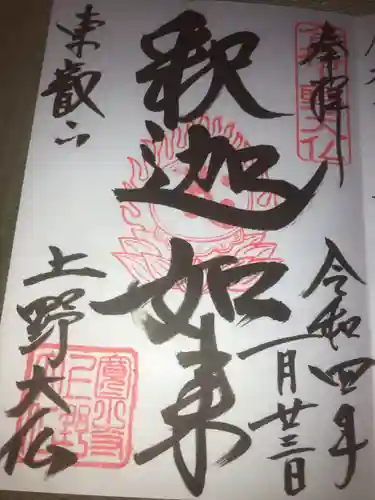 奉拝
令和四年
一月廿三日
釈迦如来
東叡山
上野大仏